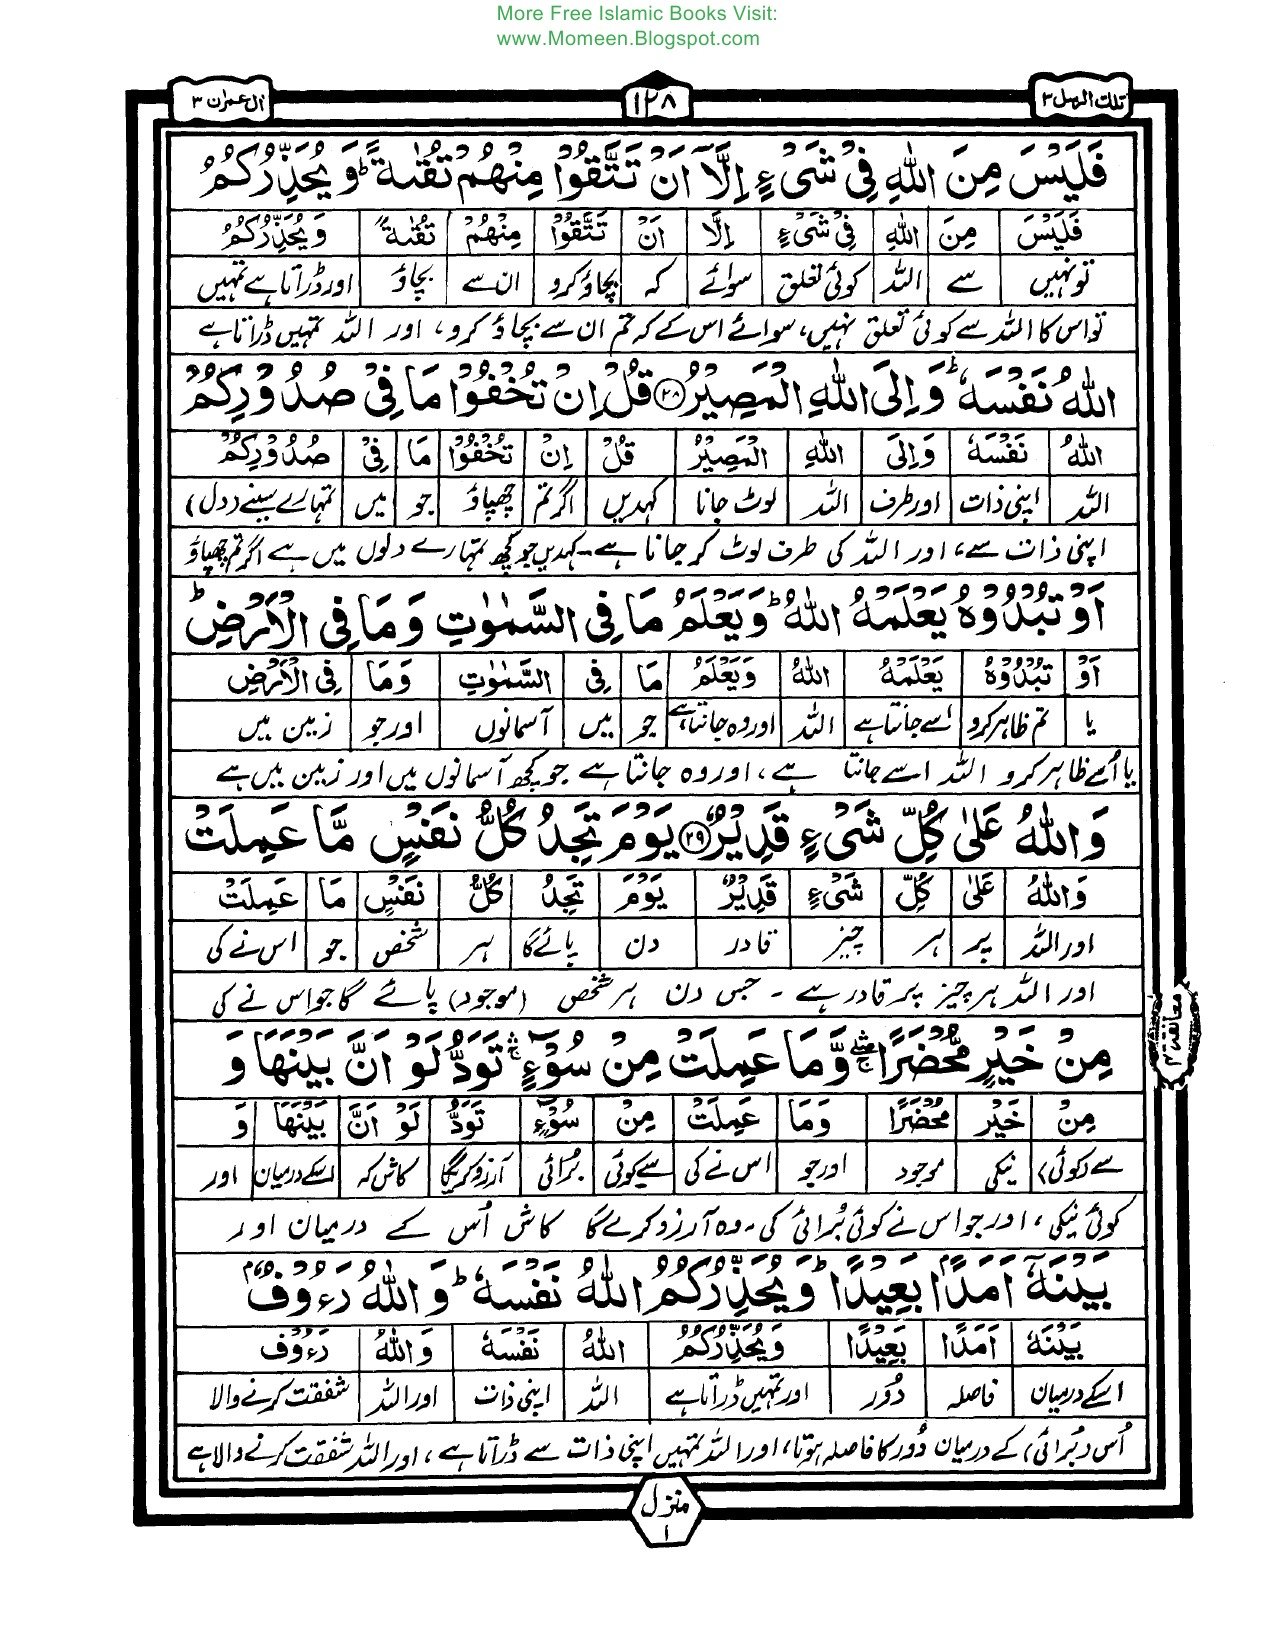 More Free Islamic Books Visit:
www.Momeen.Blogspot.com
تلك الرسل ٣ ١٢٨ اٰل عمران ٣
فَلَيْسَ مِنَ اللّٰهِ فِيْ شَيْءٍ اِلَّاۤ اَنْ تَتَّقُوْا مِنْهُمْ تُقٰىةً ؕ وَ يُحَذِّرُكُمُ
فَلَيْسَ مِنَ اللّٰهِ فِيْ شَيْءٍ اِلَّا اَنْ تَتَّقُوْا مِنْهُمْ تُقٰىةً وَيُحَذِّرُكُمُ
تو نہیں سے اللہ کوئی تعلق سوائے کہ بچاؤ کرو ان سے بچاؤ اور ڈراتا ہے تمہیں
تو اس کا اللہ سے کوئی تعلق نہیں، سوائے اس کے کہ تم ان سے بچاؤ کرو، اور اللہ تمہیں ڈراتا ہے
اللّٰهُ نَفْسَهٗ ؕ وَ اِلَى اللّٰهِ الْمَصِيْرُ ۝٢٨ قُلْ اِنْ تُخْفُوْا مَا فِيْ صُدُوْرِكُمْ
اللّٰهُ نَفْسَهٗ وَاِلَى اللّٰهِ الْمَصِيْرُ قُلْ اِنْ تُخْفُوْا مَا فِيْ صُدُوْرِكُمْ
اللہ اپنی ذات اور طرف اللہ لوٹ جانا کہدیں اگر تم چھپاؤ جو میں تمہارے سینے (دل)
اپنی ذات سے، اور اللہ کی طرف لوٹ کر جانا ہے۔ کہدیں جو کچھ تمہارے دلوں میں ہے اگر تم چھپاؤ
اَوْ تُبْدُوْهُ يَعْلَمْهُ اللّٰهُ ؕ وَيَعْلَمُ مَا فِي السَّمٰوٰتِ وَمَا فِي الْاَرْضِ ؕ
اَوْ تُبْدُوْهُ يَعْلَمْهُ اللّٰهُ وَيَعْلَمُ مَا فِي السَّمٰوٰتِ وَمَا فِي الْاَرْضِ
یا تم ظاہر کرو اسے جانتا ہے اللہ اور وہ جانتا ہے جو میں آسمانوں اور جو زمین میں
یا اُسے ظاہر کرو اللہ اسے جانتا ہے، اور وہ جانتا ہے جو کچھ آسمانوں میں اور زمین میں ہے
وَاللّٰهُ عَلٰى كُلِّ شَيْءٍ قَدِيْرٌ ۝٢٩ يَوْمَ تَجِدُ كُلُّ نَفْسٍ مَّا عَمِلَتْ
وَاللّٰهُ عَلٰى كُلِّ شَيْءٍ قَدِيْرٌ يَوْمَ تَجِدُ كُلُّ نَفْسٍ مَا عَمِلَتْ
اور اللہ پر ہر چیز قادر دن پائے گا ہر شخص جو اس نے کی
اور اللہ ہر چیز پر قادر ہے ۔ جس دن ہر شخص (موجود) پائے گا جو اس نے کی
مِنْ خَيْرٍ مُّحْضَرًا ۛۚ وَّمَا عَمِلَتْ مِنْ سُوْٓءٍ ۛۚ تَوَدُّ لَوْ اَنَّ بَيْنَهَا وَ
معانقة ٢
مِنْ خَيْرٍ مُحْضَرًا وَمَا عَمِلَتْ مِنْ سُوْٓءٍ تَوَدُّ لَوْ اَنَّ بَيْنَهَا وَ
سے (کوئی) نیکی موجود اور جو اس نے کی سے کوئی برائی آرزو کریگا کاش کہ اسکے درمیان اور
کوئی نیکی، اور جو اس نے کوئی بُرائی کی۔ وہ آرزو کرے گا کاش اُس کے درمیان اور
بَيْنَهٗۤ اَمَدًۢا بَعِيْدًا ؕ وَيُحَذِّرُكُمُ اللّٰهُ نَفْسَهٗ ؕ وَاللّٰهُ رَءُوْفٌۢ
بَيْنَهٗ اَمَدًا بَعِيْدًا وَيُحَذِّرُكُمُ اللّٰهُ نَفْسَهٗ وَاللّٰهُ رَءُوْفٌ
اسکے درمیان فاصلہ دُور اور تمہیں ڈراتا ہے اللہ اپنی ذات اور اللہ شفقت کرنے والا
اُس (بُرائی) کے درمیان دُور کا فاصلہ ہوتا، اور اللہ تمہیں اپنی ذات سے ڈراتا ہے، اور اللہ شفقت کرنے والا ہے
منزل ١